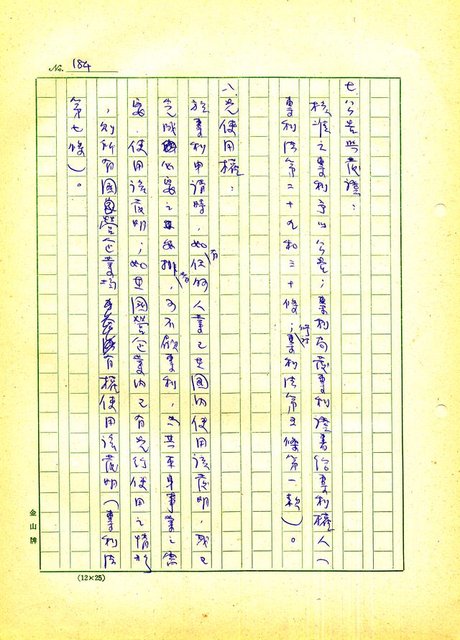 No. 184
七、公告與發證：
核准之專利予以公告；專利局發專利證書給專利權人（
專利法第二十九和三十條；專利法施行第五條第一款）。
八、先使用權：
於專利申請時，如有任何人業已在國內使用該發明，或已
完成必需之安排，而不欲專利，為其本身事業之需
要，使用該發明；如在國營企業內已有先行使用之情形
，則所有國營企業均有權使用該發明（專利法
第七條）。
金山牌
(12×25)